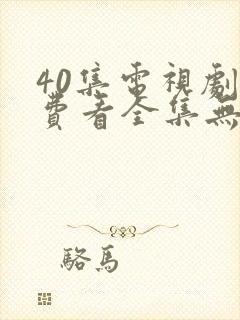 40集電視劇
費看全集無
駱馬